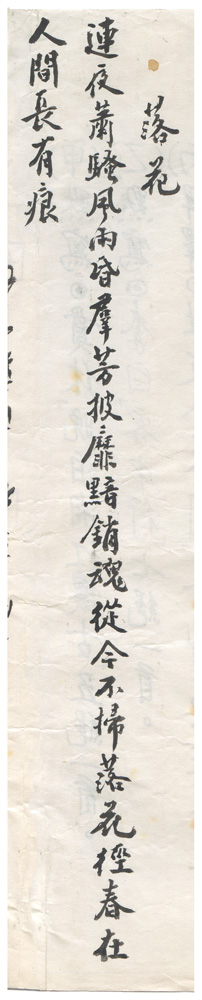 落花
連夜蕭騷風雨昏羣芳披靡黯銷魂從今不掃落花徑春在
人間長有痕